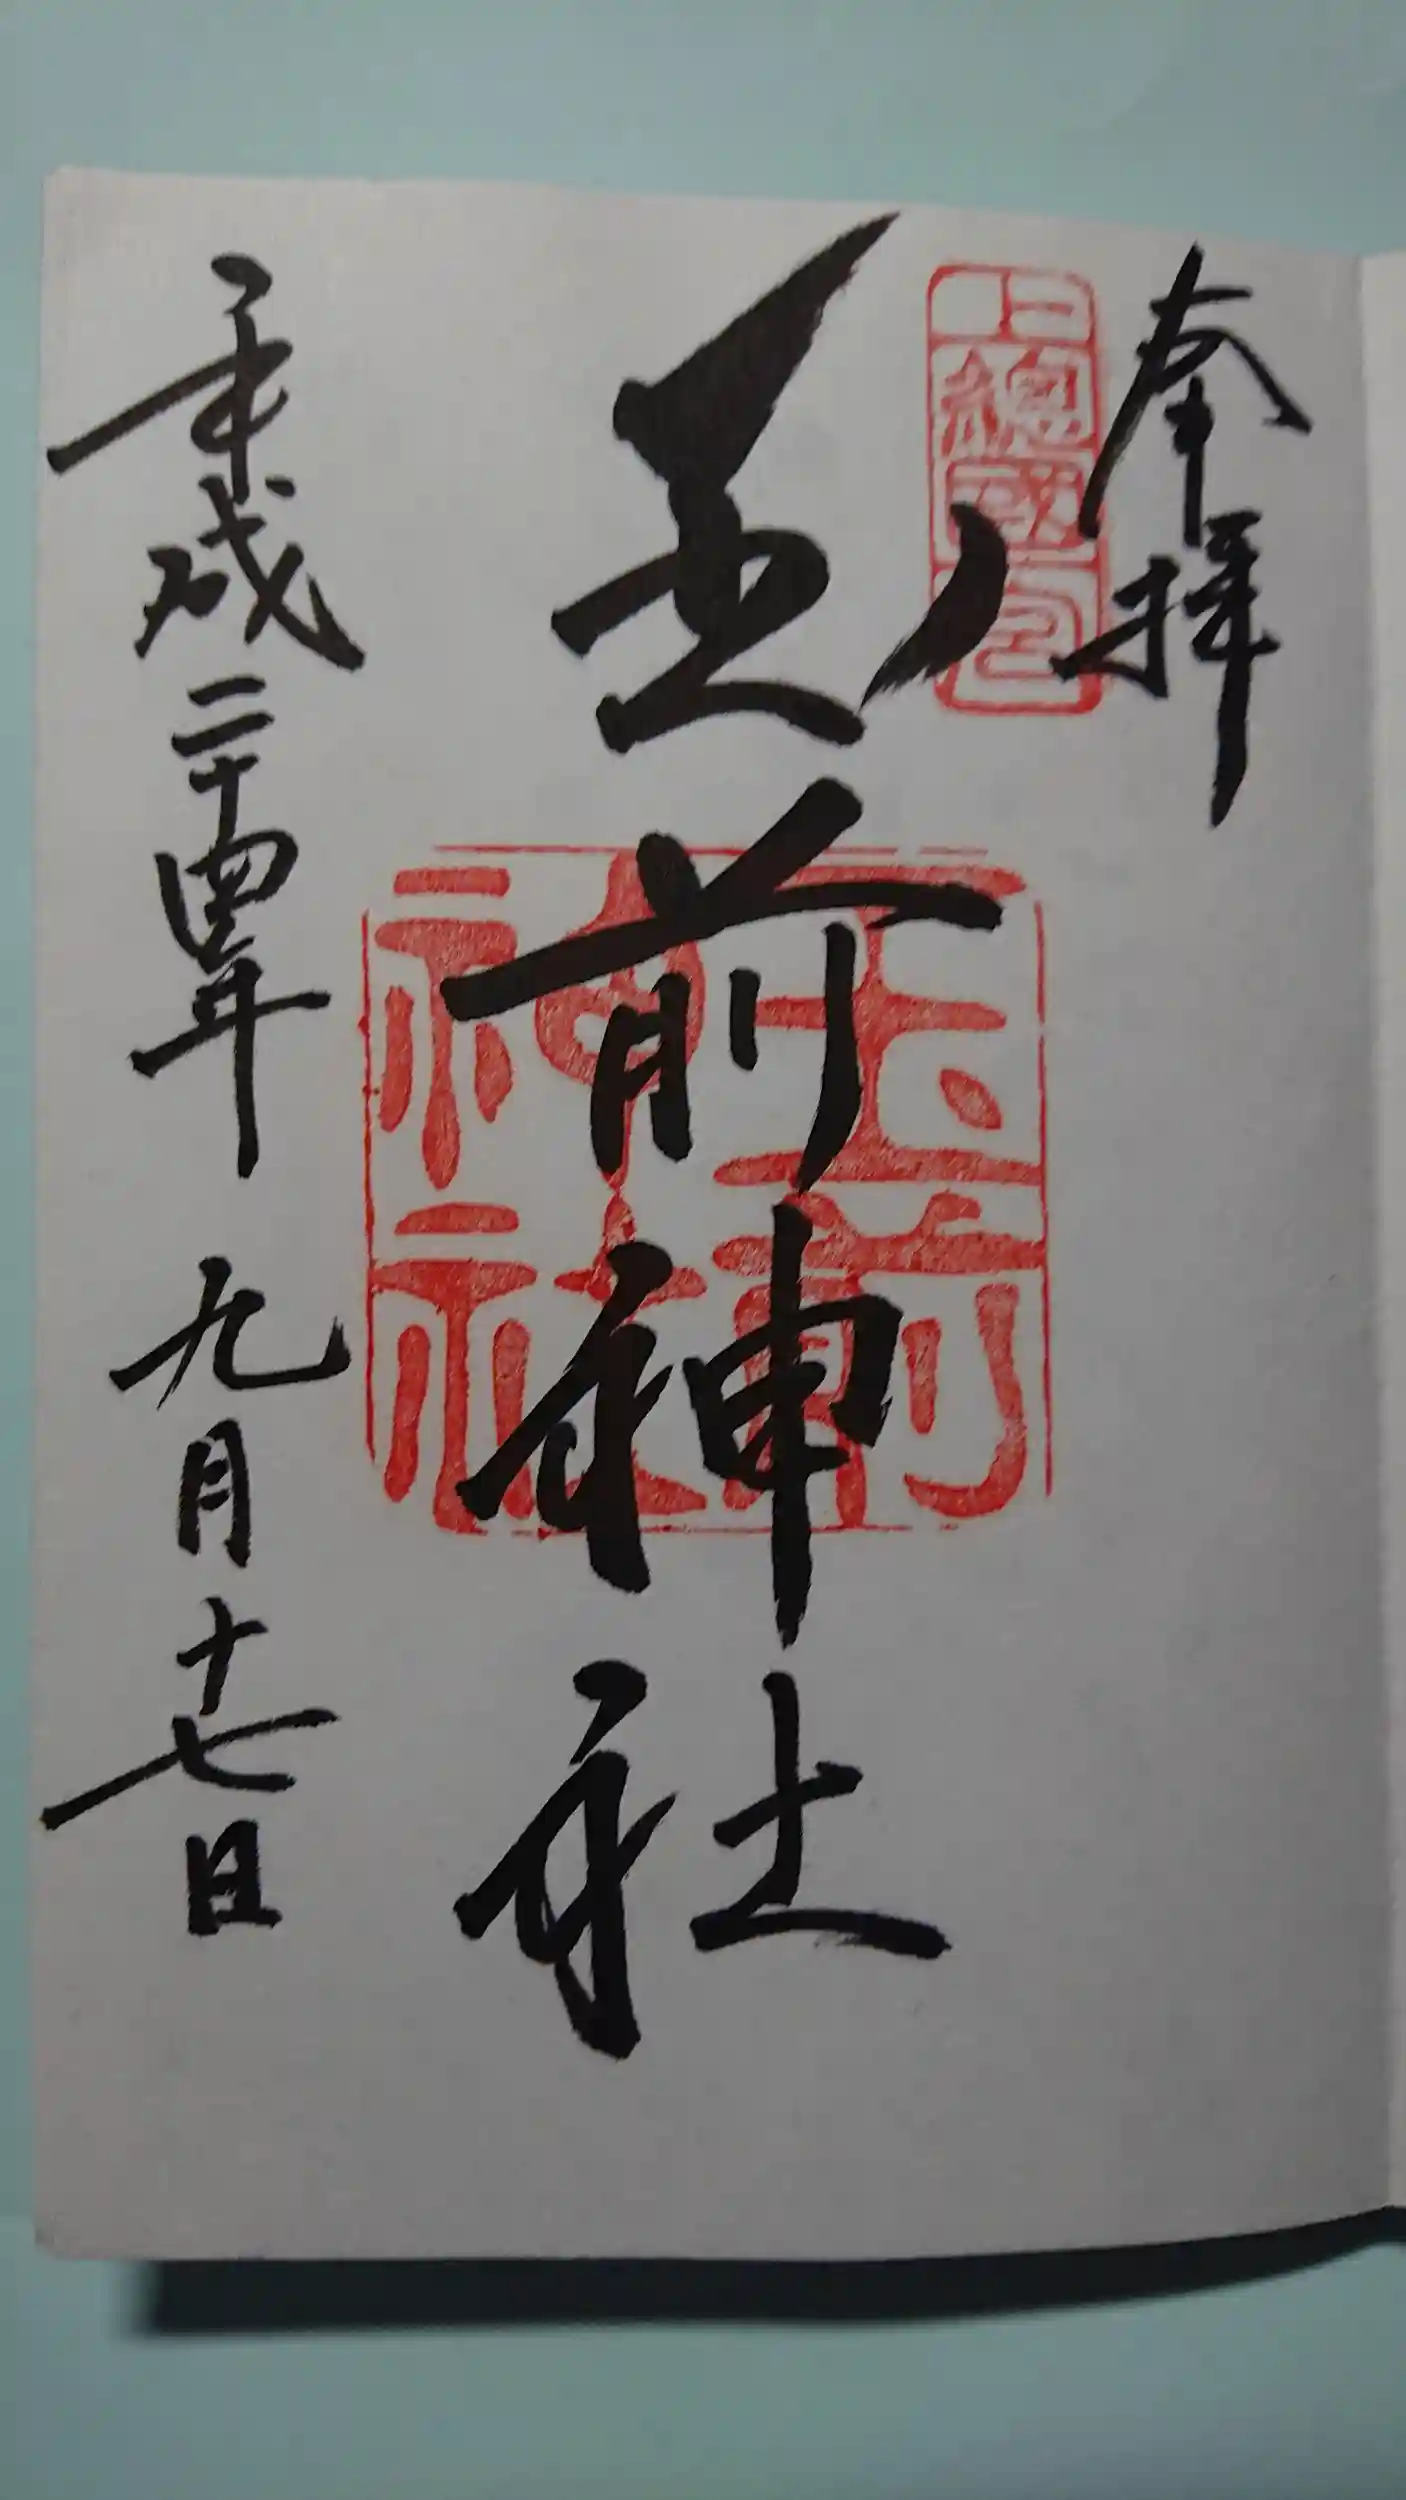 奉拝
上總國一宮
玉前神社
玉前神社
平成二十四年 九月十七日